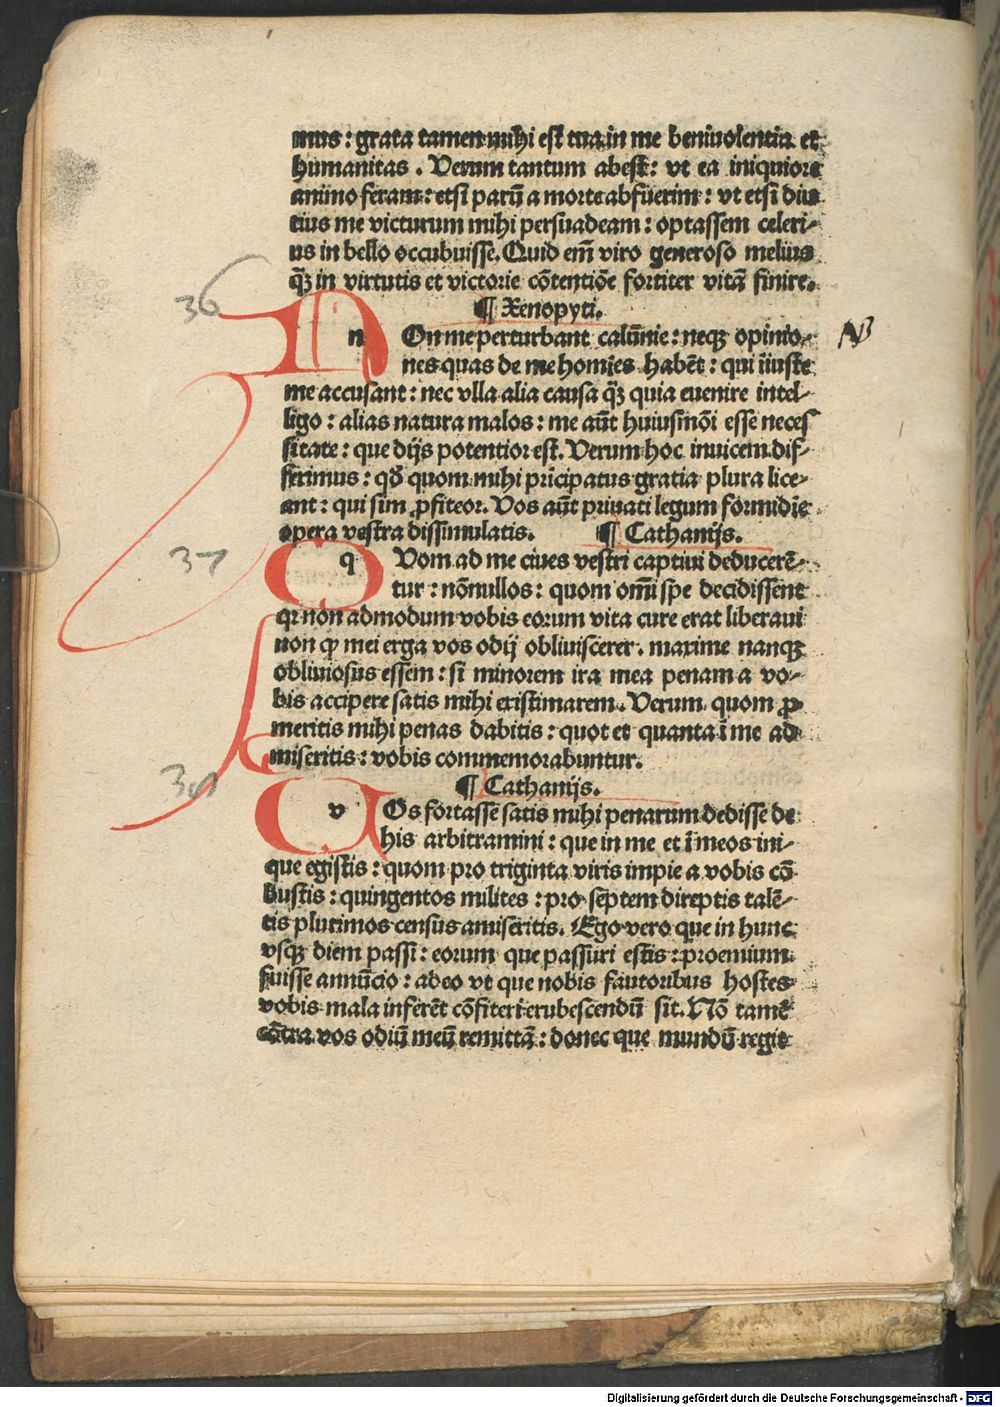 mus: grata tamen mihi est tua in me beniuolentia et
humanitas. Verum tantum abest: vt ea iniquiore
animo feram: etsi parū a morte abfuerim: vt etsi diu
tius me victurum mihi persuadeam: optassem celeri-
us in bello occubuisse. Quid em̄ viro generoso melius
qꝫ in virtutis et victorie cōtentiōe fortiter vitā finire.
36
¶ Xenopyti.
n On me perturbant calūnie: neqꝫ opinio- NB
nes quas de me homīes habēt: qui īiuste
me accusant: nec vlla alia causa qꝫ quia euenire intel-
ligo: alias natura malos: me aūt huiusmōi esse neces
sitate: que dijs potentior est. Verum hoc inuicem dif-
ferimus: qð quom mihi pricipatus gratia plura lice-
ant: qui sim ꝓfiteor. Vos aūt priuati legum formidīe
opera vestra dissimulatis. ¶ Cathanijs.
37
q Vom ad me ciues vestri captiui deducerē-
tur: nōnullos: quom omī spe decidissent
qꝛ non admodum vobis eorum vita cure erat liberaui
non ꝙ mei erga vos odij obliuiscerer. maxime nanqꝫ
obliuiosus essem: si minorem ira mea penam a vo-
bis accipere satis mihi existimarem. Verum quom ꝓ
meritis mihi penas dabitis: quot et quanta ī me ad
miseritis: vobis commemorabuntur.
38
¶ Cathanijs.
v Os fortasse satis mihi penarum dedisse de
his arbitramini: que in me et ī meos ini-
que egistis: quom pro triginta viris impie a vobis cō-
bustis: quingentos milites: pro septem direptis talē-
tis plurimos census amiseritis. Ego vero que in hunc
vsqꝫ diem passi: eorum que passuri estis: proemium
fuisse annūcio: adeo vt que nobis fautoribus hostes
vobis mala inferēt cōfiteri erubescendū sit. Nō tamē
cōtra vos odiū meū remittā: donec que mundū regit
Digitalisierung gefördert durch die Deutsche Forschungsgemeinschaft - DFG